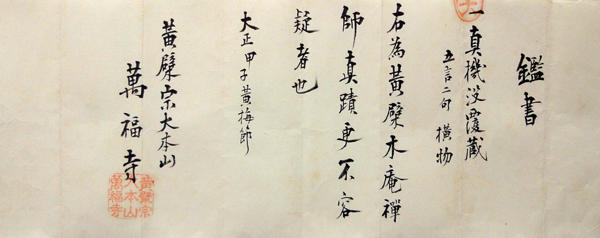 鑑書
一真機没覆蔵
五言二句 横物
右為黄檗木庵禅
師真蹟更不容
疑者也
大正甲子黄梅節
黄檗宗大本山
萬福寺
黄檗宗
大本山
萬福寺